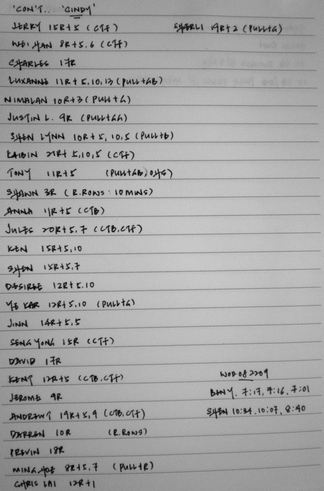 'CON'T.. 'CINDY'
JERRY 15R+5 (CTF)
SHERLI 19R+2 (PULL+G)
WEI HAN 8R+5,6 (CTF)
CHARLES 17R
LUXANNE 11R+5,10,13 (PULL+GB)
NIMALAN 10R+3 (PULL+G)
JUSTIN L. 9R (PULL+GG)
SHEN LYNN 10R+5,10,5 (PULL+B)
21R+5,10,5 (CTF)
TONY 11R+5 (PULL+GB)
SHAWN 3R (R.ROWS. 10MINS)
ANNA 11R+5 (CTB)
JULES 20R+5,7 (CTB,CTF)
KEN 15R+5,10
SHEN 15R+5,7
DESIREE 12R+5,10
YE KAR 12R+5,10 (PULL+G)
JINN 14R+5,5
SENG YONG 15R (CTF)
DAVID 17R
KENT 12R+5 (CTB,CTF)
JEROME 9R
ANDREW T 19R+5,9 (CTB,CTF)
DARREN 10R (R.ROWS)
PREVIN 18R
MING 8R+5,7 (PULL+R)
CHRIS LAI 12R+1
WOD 082209
BENY. 7:17, 9:16, 7:01
SHEN 10:24, 10:07, 8:40